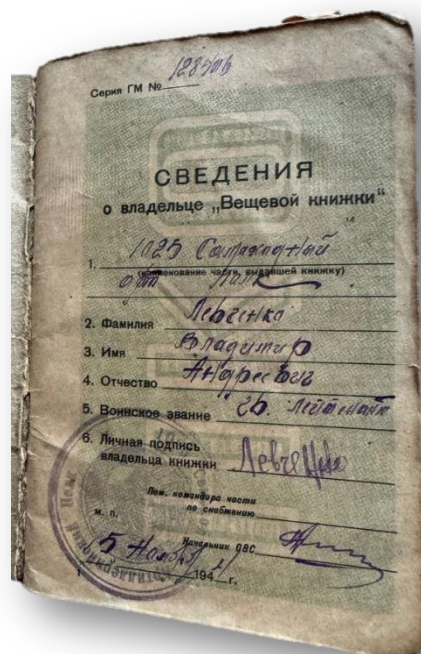 Серия ГМ №
СВЕДЕНИЯ
о владельце „Вещевой книжки"
1. 1025
(наименование части, выдавшей книжку)
2. Фамилия Левченко
3. Имя Владимир
4. Отчество Андреевич
5. Воинское звание Лейтенант
6. Личная подпись
владельца книжки Левченко
Пом. командира части
по снабжению
м. п.
Начальник ОВС
5 Ноября 194 г.